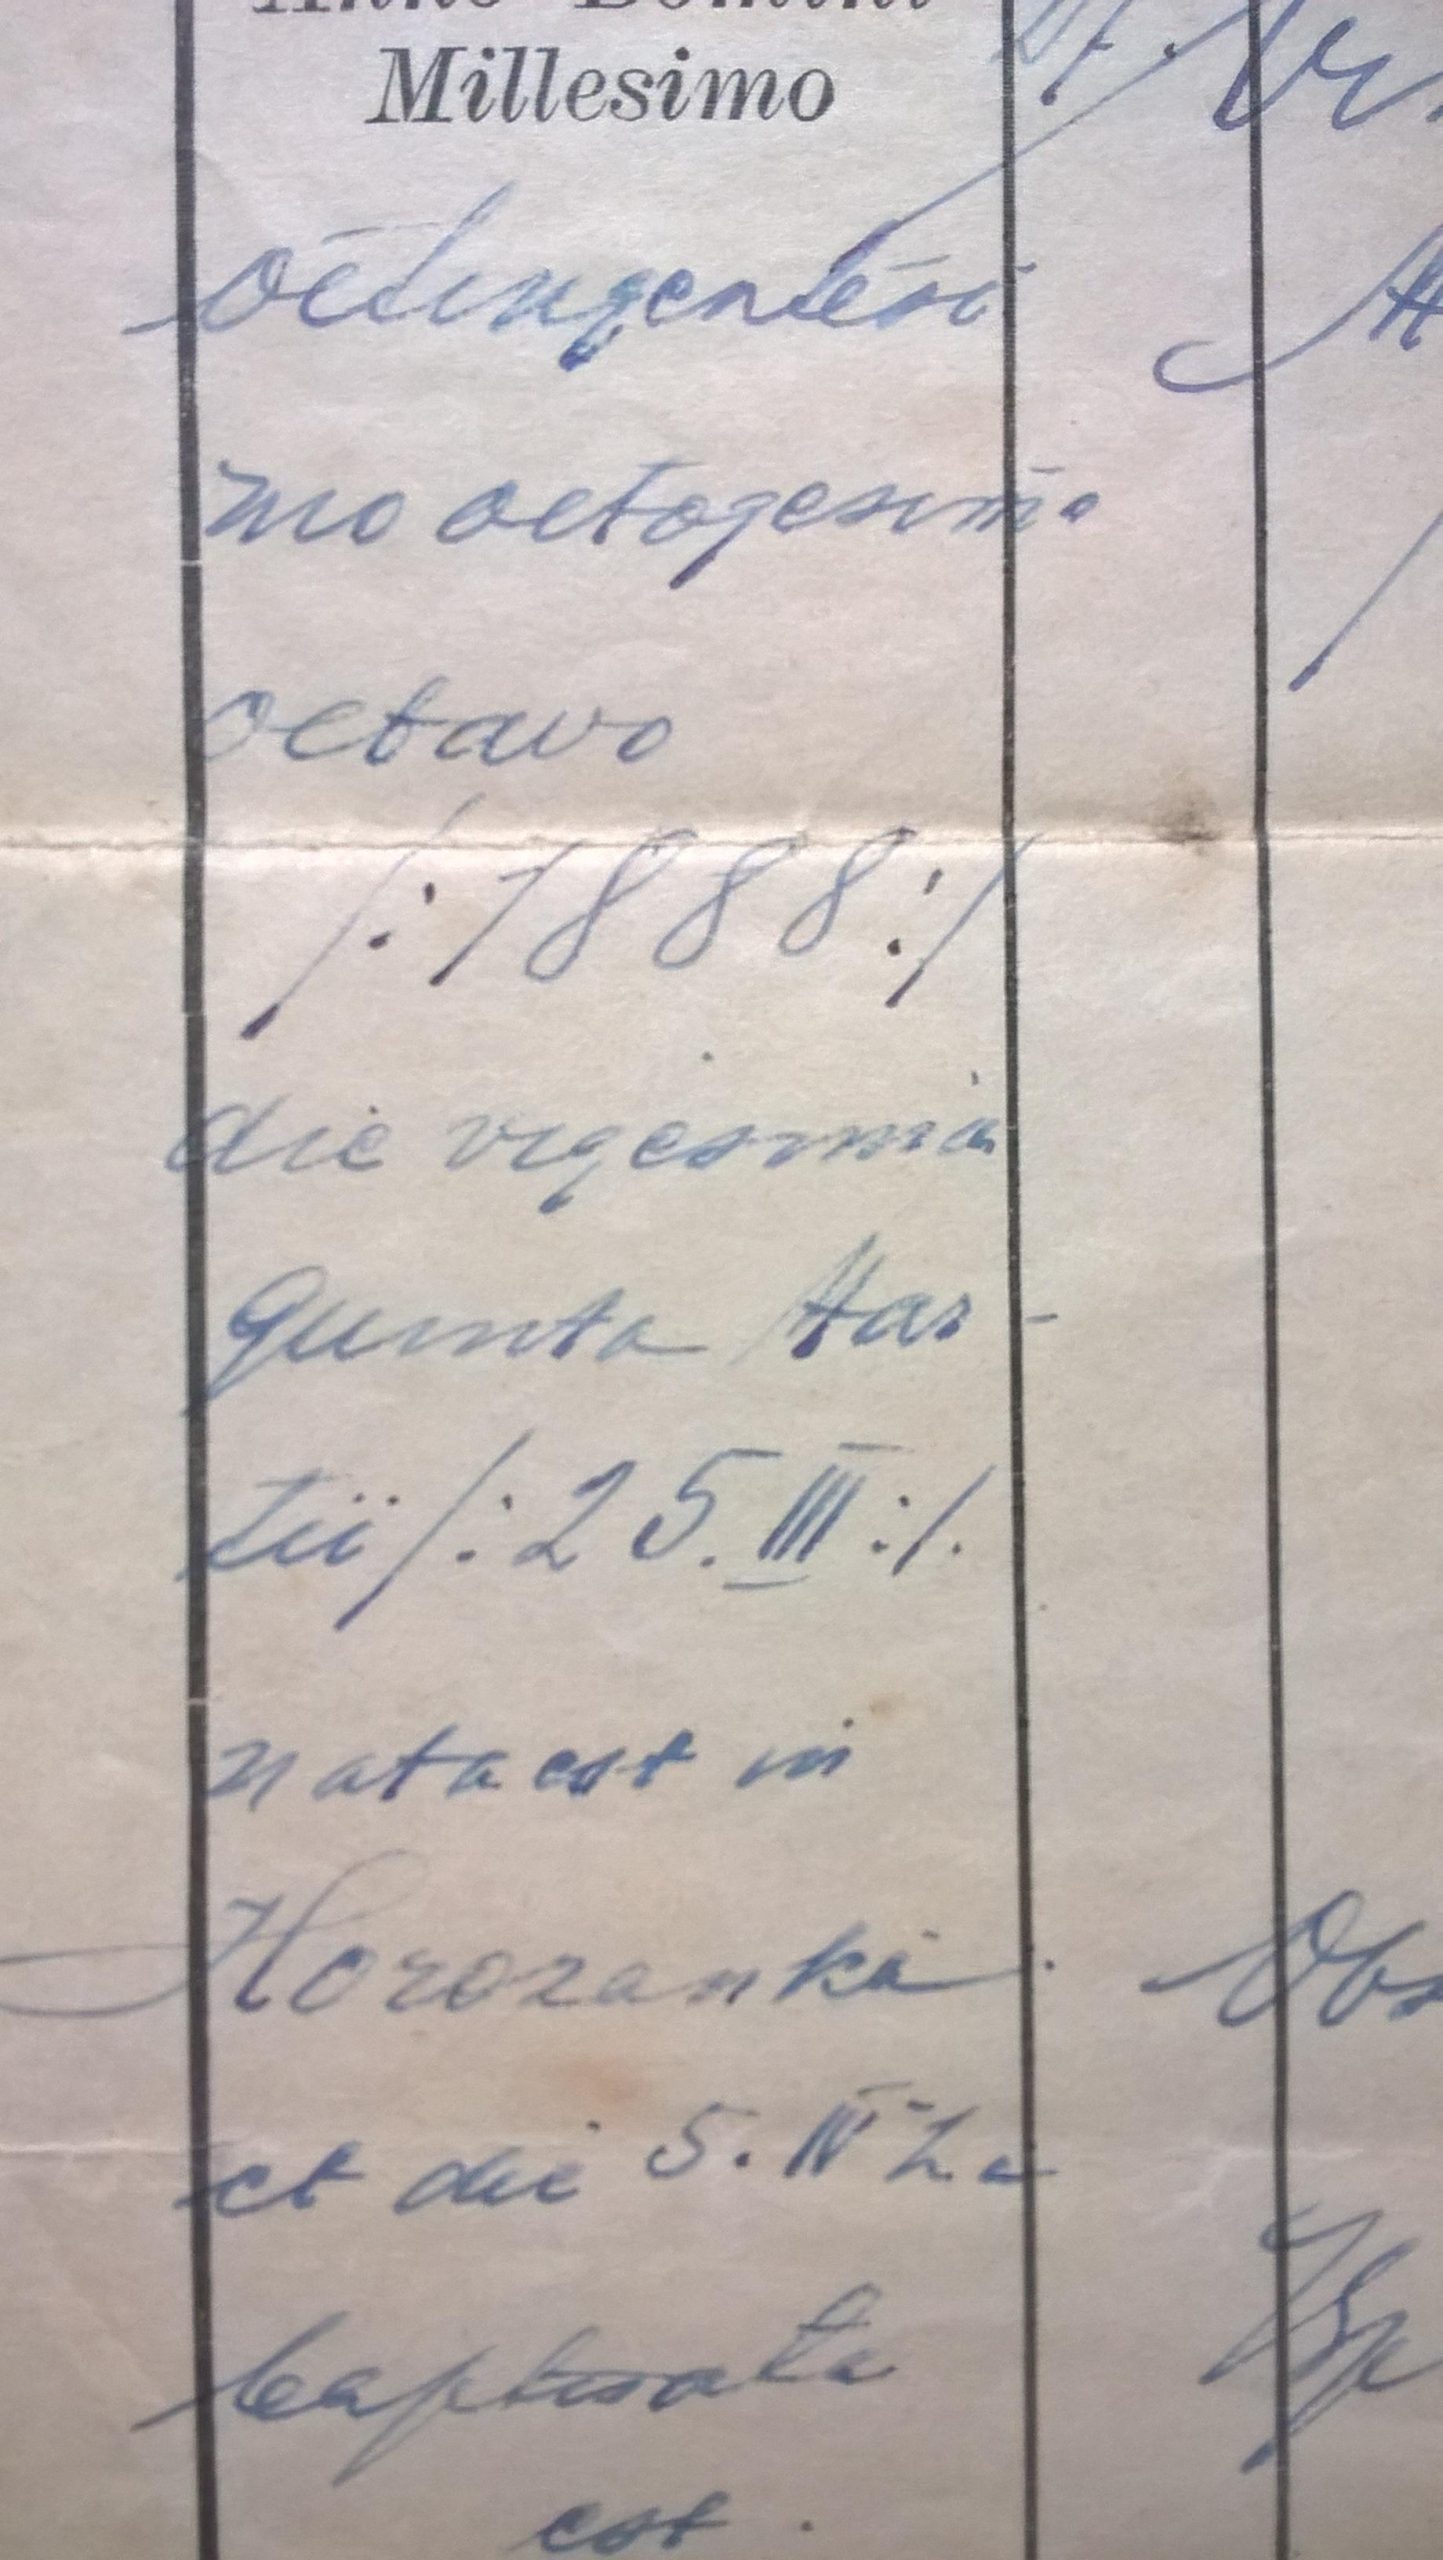 Anno Domini
Millesimo
octingentesi
mo octogesimo
octavo
/:1888:/
die vigesima
quinta Mar-
tii /:25.III:/.
nata est in
Horozanka
et die 5. IV
baptisata
est.